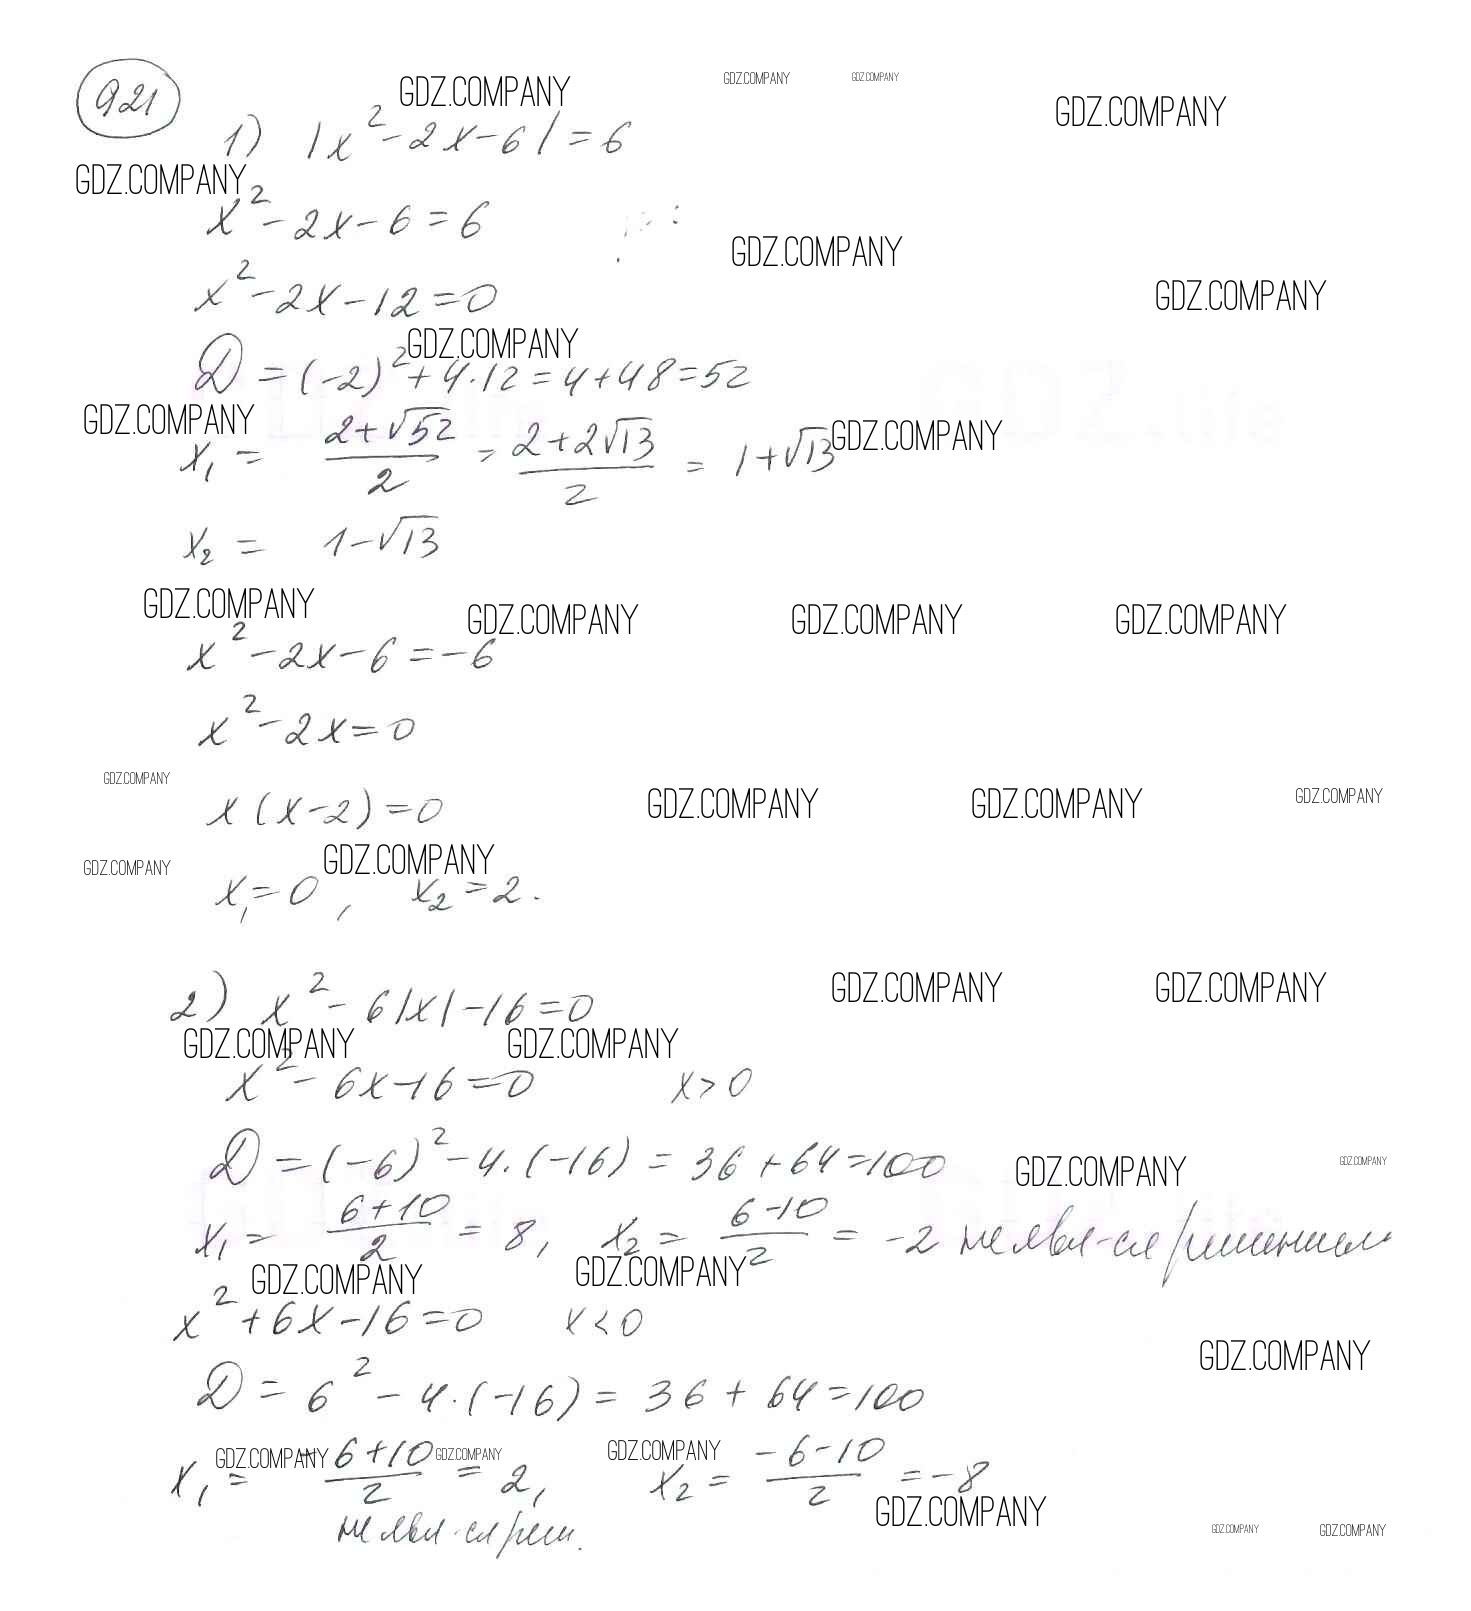 921
GDZ.COMPANY GDZ.COMPANY GDZ.COMPANY GDZ.COMPANY
1) |x² - 2x - 6| = 6
GDZ.COMPANY
x² - 2x - 6 = 6
GDZ.COMPANY
x² - 2x - 12 = 0
GDZ.COMPANY
GDZ.COMPANY
D = (-2)² + 4·12 = 4 + 48 = 52
GDZ.life
GDZ.COMPANY GDZ.COMPANY
x₁ = (2+√52)/2 = (2+2√13)/2 = 1+√13
x₂ = 1-√13
GDZ.COMPANY GDZ.COMPANY GDZ.COMPANY GDZ.COMPANY
x² - 2x - 6 = -6
x² - 2x = 0
GDZ.COMPANY
x(x-2) = 0
GDZ.COMPANY GDZ.COMPANY GDZ.COMPANY
GDZ.COMPANY GDZ.COMPANY
x₁ = 0, x₂ = 2.
GDZ.COMPANY GDZ.COMPANY
2) x² - 6|x| - 16 = 0
GDZ.COMPANY GDZ.COMPANY
x² - 6x - 16 = 0 x > 0
D = (-6)² - 4·(-16) = 36 + 64 = 100
GDZ.COMPANY GDZ.COMPANY
x₁ = (6+10)/2 = 8, x₂ = (6-10)/2 = -2 не явл-ся решением
GDZ.COMPANY GDZ.COMPANY
x² + 6x - 16 = 0 x < 0
GDZ.COMPANY
D = 6² - 4·(-16) = 36 + 64 = 100
GDZ.COMPANY GDZ.COMPANY GDZ.COMPANY
x₁ = (-6+10)/2 = 2, x₂ = (-6-10)/2 = -8
GDZ.COMPANY
не явл-ся реш.
GDZ.COMPANY GDZ.COMPANY